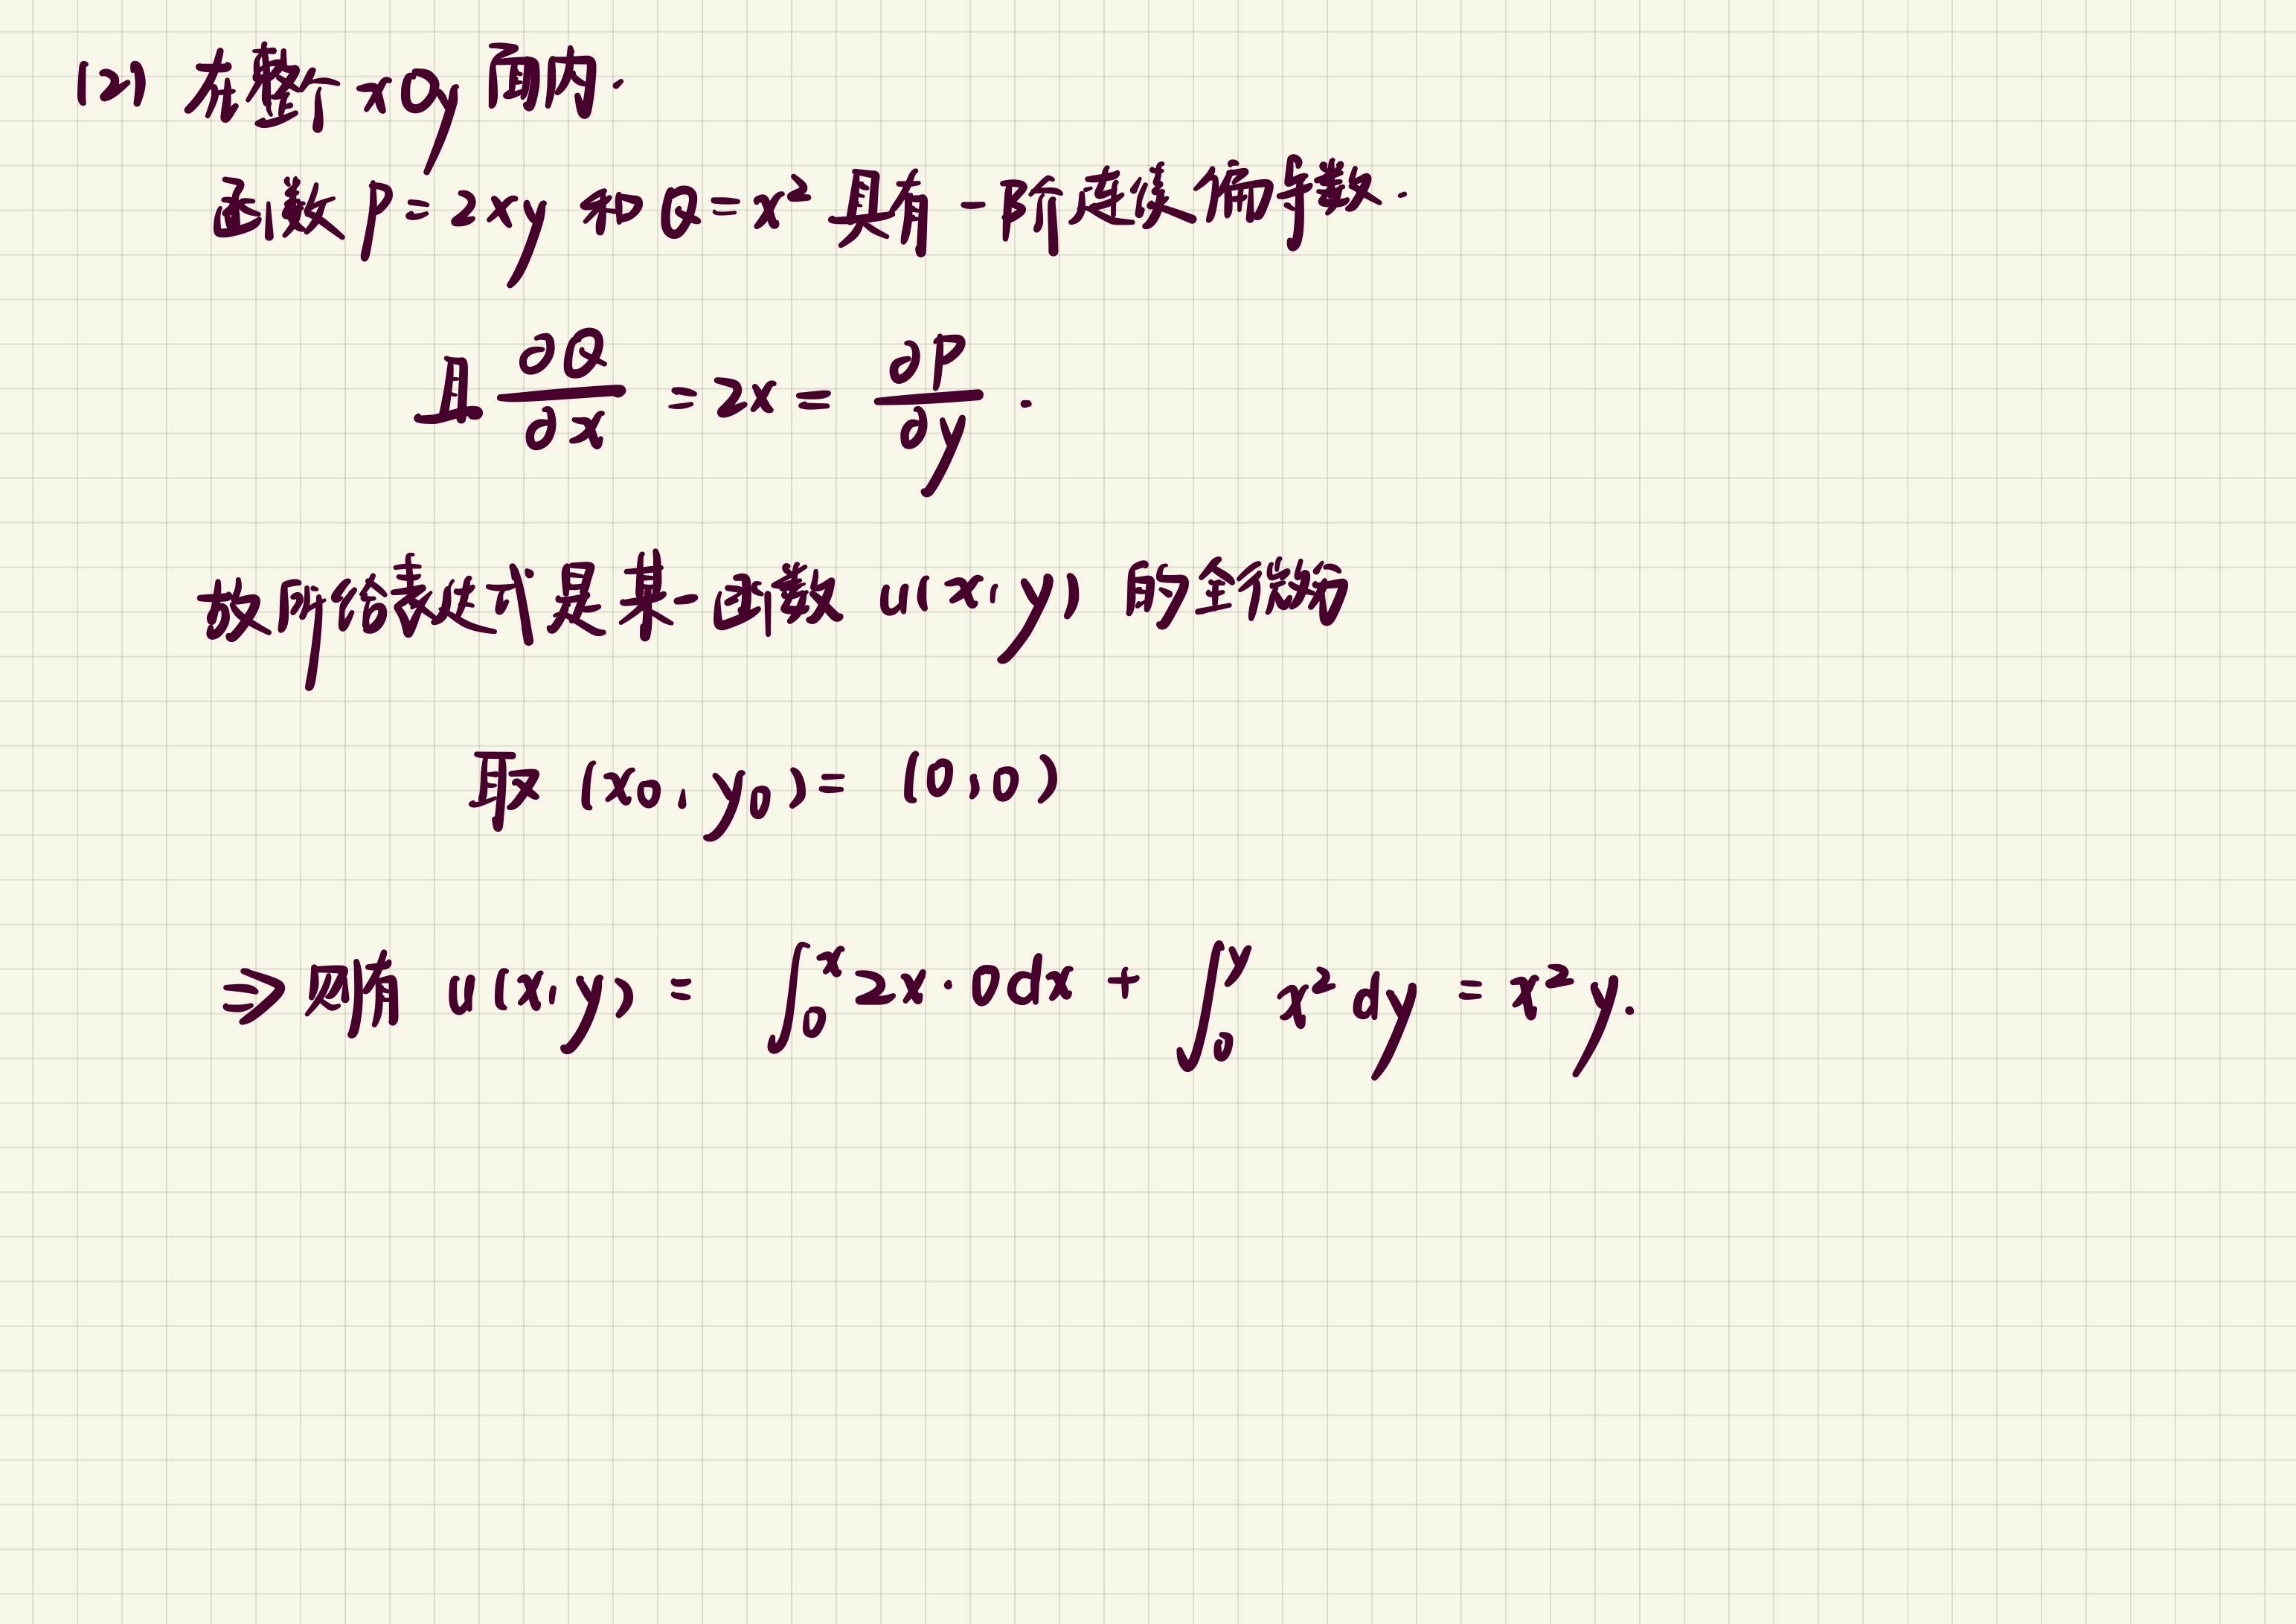 (2) 在整个 xOy 面内.
函数 P = 2xy 和 Q = x² 具有一阶连续偏导数.
且 ∂Q/∂x = 2x = ∂P/∂y .
故所给表达式是某一函数 u(x, y) 的全微分
取 (x₀, y₀) = (0, 0)
⇒ 则有 u(x, y) = ∫₀ˣ 2x · 0 dx + ∫₀ʸ x² dy = x² y.